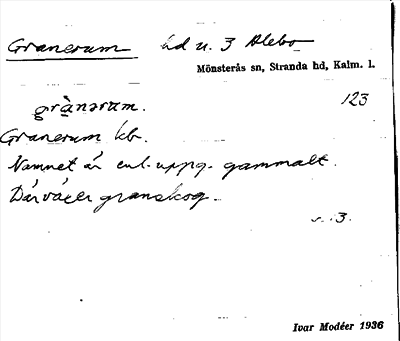 Granerum hd u. 3 Alebo
Mönsterås sn, Stranda hd, Kalm. l.
grànərum. 123
Granerum kb.
Namnet är enl. uppg. gammalt.
Där växer granskog.
s. 3.
Ivar Modéer 1936